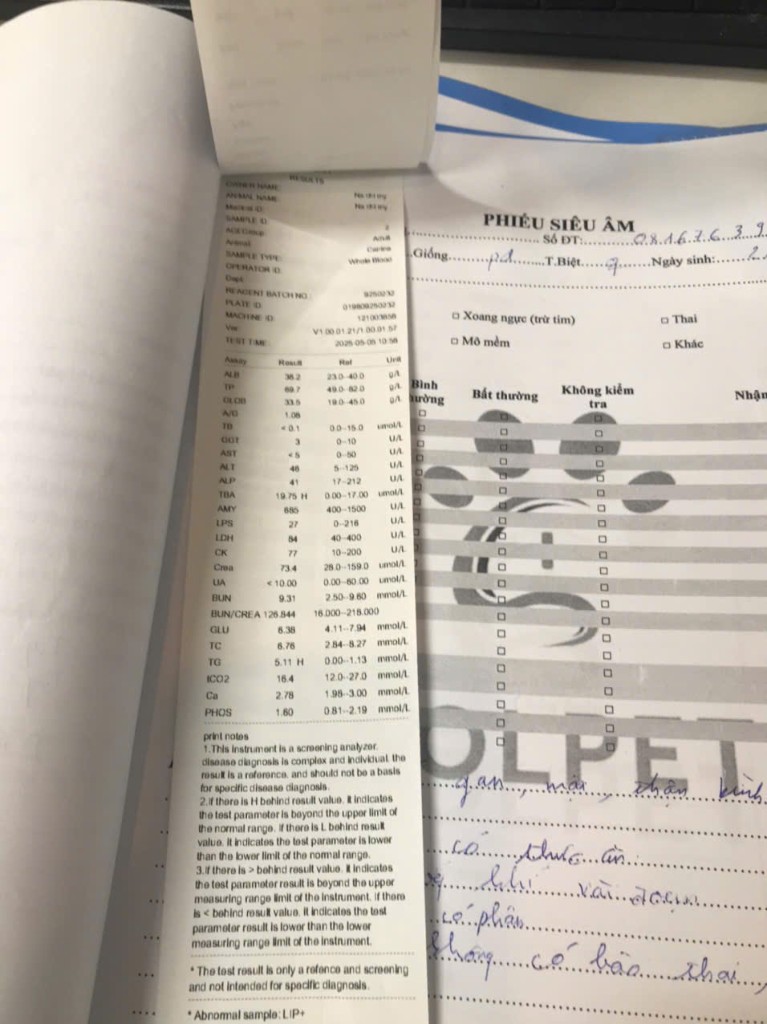 RESULTS
OWNER NAME:
ANIMAL NAME:
SAMPLE ID:
2
Age Group: Adult
Animal: Canine
SAMPLE TYPE: Whole Blood
OPERATOR ID:
Dept:
REAGENT BATCH NO.:
PLATE ID:
MACHINE ID:
Ver: V1.00.01.21/1.00.01.57
TEST TIME:
Assay Result Ref Unit
ALB 38.2 23.0--40.0 g/L
TP 69.7 49.0--82.0 g/L
GLOB 33.5 19.0--45.0 g/L
A/G 1.08
TB <0.1 0.0--15.0 umol/L
GGT 3 0--10 U/L
AST <5 0--50 U/L
ALT 48 5--125 U/L
ALP 41 17--212 U/L
TBA 19.75 H 0.00--17.00 umol/L
AMY 685 400--1500 U/L
LPS 27 0--216 U/L
LDH 84 40--400 U/L
CK 77 10--200 U/L
Crea 73.4 28.0--159.0 umol/L
UA <10.00 0.00--60.00 umol/L
BUN 9.31 2.50--9.60 mmol/L
BUN/CREA 126.844 16.000--218.000
GLU 6.38 4.11--7.94 mmol/L
TC 6.76 2.84--8.27 mmol/L
TG 5.11 H 0.00--1.13 mmol/L
tCO2 16.4 12.0--27.0 mmol/L
Ca 2.78 1.98--3.00 mmol/L
PHOS 1.60 0.81--2.19 mmol/L
print notes
1.This instrument is a screening analyzer.
disease diagnosis is complex and individual. the
result is a reference. and should not be a basis
for specific disease diagnosis.
2.if there is H behind result value. it indicates
the test parameter is beyond the upper limit of
the normal range. if there is L behind result
value. it indicates the test parameter is lower
than the lower limit of the normal range.
3.if there is > behind result value. it indicates
the test parameter result is beyond the upper
measuring range limit of the instrument. if there
is < behind result value. it indicates the test
parameter result is lower than the lower
measuring range limit of the instrument.
* The test result is only a refence and screening
and not intended for specific diagnosis.
* Abnormal sample: LIP+
PHIẾU SIÊU ÂM
Số ĐT: 0816763 9
Giống T.Biệt Ngày sinh: 2
□ Xoang ngực (trừ tim) □ Thai
□ Mô mềm □ Khác
Bình
thường Bất thường Không kiểm
tra Nhận
OLPET
gan, mật, thận bình
có thức ăn
khí vài đoạn
có phân
không có bào thai,